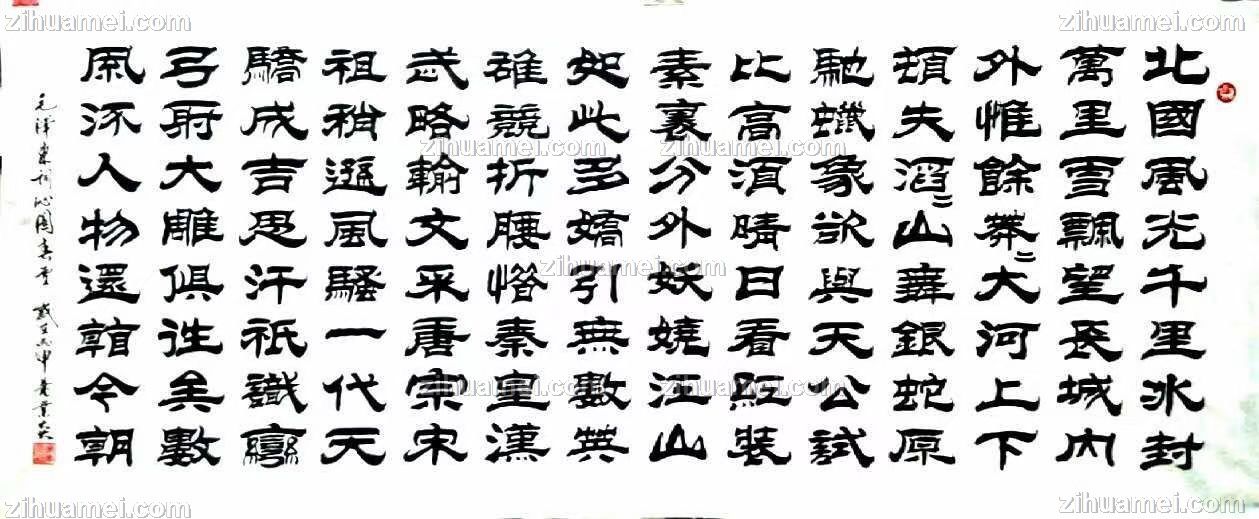 北國風光千里冰封
萬里雪飄望長城內
外惟餘莽二大河上下
頓失滔二山舞銀蛇原
馳蠟象欲與天公試
比高須晴日看紅裝
素裹分外妖嬈江山
如此多嬌引無數英
雄競折腰惜秦皇漢
武略輸文采唐宗宋
祖稍遜風騷一代天
驕成吉思汗祇識彎
弓射大雕俱往矣數
風流人物還看今朝
毛澤東詞沁園春雪
zihuamei.com
zihuamei.com
zihuamei.com
zihuamei.com
zihuamei.com
zihuamei.com
zihuamei.com
zihuamei.com
zihuamei.com